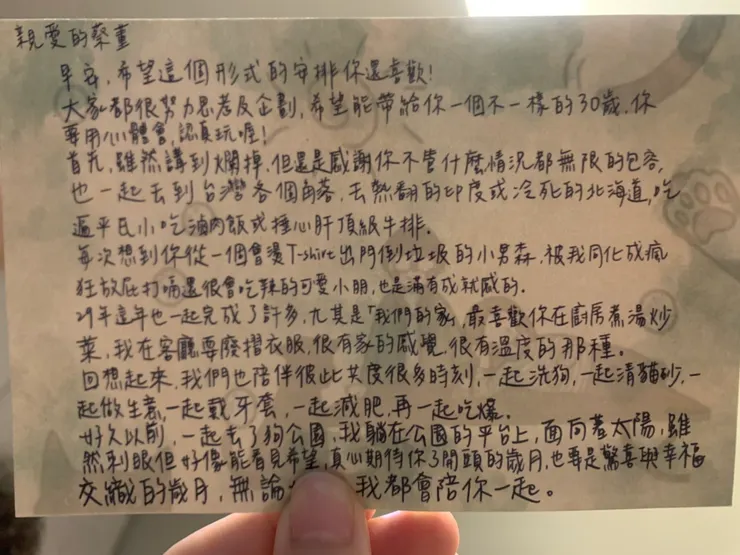 親愛的蔡董
早安，希望這個形式的安排你還喜歡！
大家都很努力思考及企劃，希望能帶給你一個不一樣的30歲，你
要用心體會，認真玩喔！
首先，雖然講到爛掉，但還是感謝你不管什麼情況都無限的包容，
也一起去到台灣各個角落，去熱翻的印度或冷死的北海道，吃
遍平民小吃滷肉飯或捶心肝頂級牛排。
每次想到你從一個會燙T-shirt出門倒垃圾的小男森，被我同化成瘋
狂放屁打嗝還很會吃辣的可愛小朋，也是滿有成就感的。
29年這年也一起完成了許多，尤其是「我們的家」，最喜歡你在廚房煮湯炒
菜，我在客廳耍廢摺衣服，很有家的感覺，很有溫度的那種。
回想起來，我們也陪伴彼此共度很多時刻，一起洗狗，一起清貓砂，一
起做生意，一起戴牙套，一起減肥，再一起吃爆。
好久以前，一起去了狗公園，我躺在公園的平台上，面向著太陽，雖
然刺眼但好像能看見希望，真心期待你3開頭的歲月，也要是驚喜與幸福
交織的歲月，無論 我都會陪你一起。